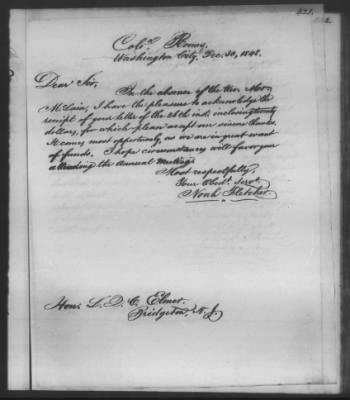 422.
Colⁿ Rooms,
Washington City, Dec. 30, 1848.
Dear Sir,
In the absence of the Rev. Mr.
McLain, I have the pleasure to acknowledge the
receipt of your letter of the 26th inst. inclosing twenty
dollars, for which please accept our sincere thanks.
It comes most opportunely, as we are in great want
of funds. I hope circumstances will favor your
attending the Annual Meeting.
Most respectfully,
Your Obedt. Servt.
Noah Fletcher.
Hon. L. Q. C. Elmer.
Bridgeton, N. J.